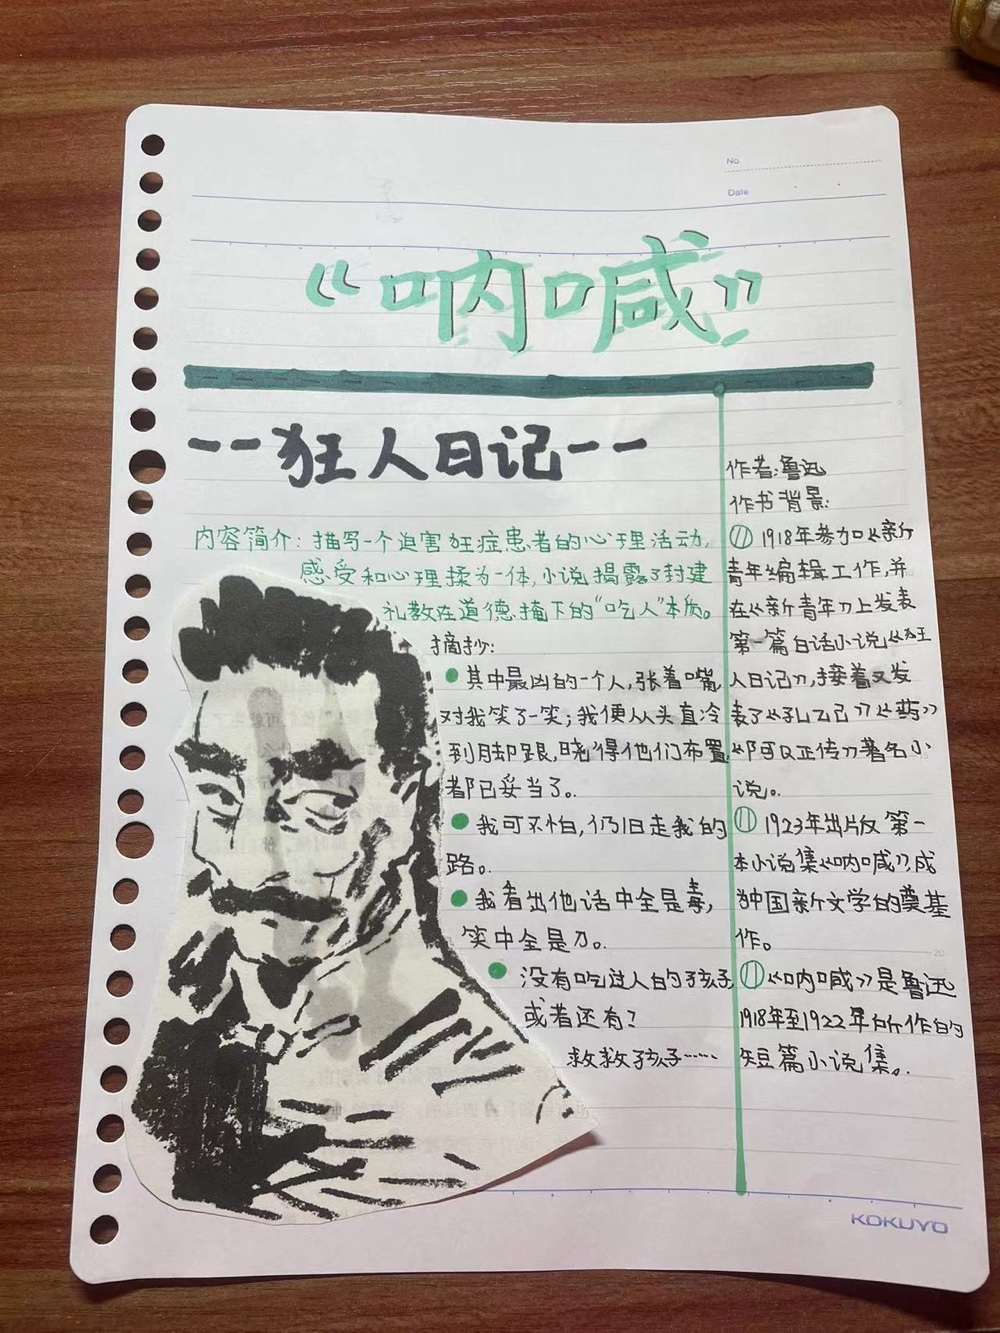 No.
Date
《呐喊》
--狂人日记--
内容简介:描写一个迫害狂症患者的心理活动,
感受和心理揉为一体,小说揭露了封建
礼教在道德掩下的“吃人”本质。
摘抄:
其中最凶的一个人,张着嘴,
对我笑了一笑;我便从头直冷
到脚跟,晓得他们布置
都已妥当了。
我可不怕,仍旧走我的
路。
我看出他话中全是毒,
笑中全是刀。
没有吃过人的孩子,
或者还有?
救救孩子……
作者:鲁迅
作书背景:
1918年参加《新
青年》编辑工作,并
在《新青年》上发表
第一篇白话小说《狂
人日记》,接着又发
表了《孔乙己》《药》
《阿Q正传》著名小
说。
1923年出版第一
本小说集《呐喊》,成
为中国新文学的奠基
作。
《呐喊》是鲁迅
1918年至1922年所作的
短篇小说集。
KOKUYO